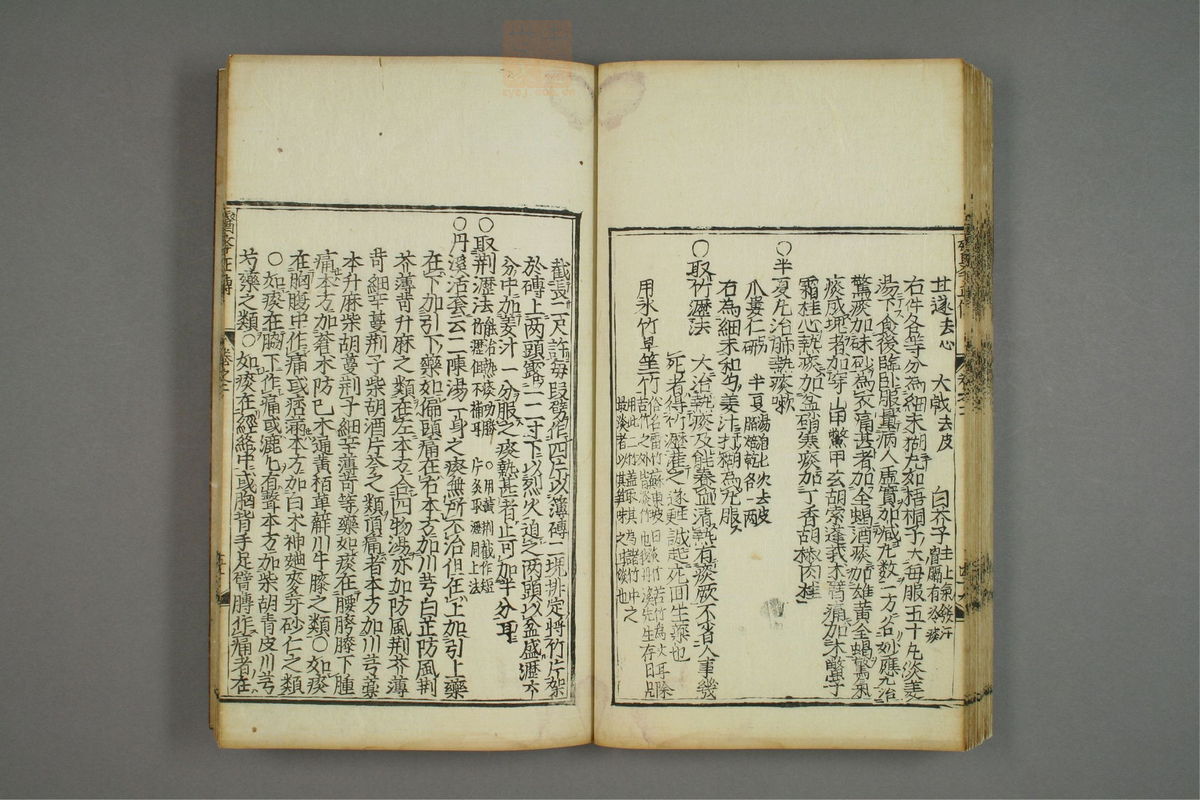 甘遂去心 大戟去皮 白芥子
右件各等分為細末糊丸如梧桐子大每服五十丸淡姜
湯下食後臨臥服量病人虛實加減丸數一方名妙應丸治
驚痰加硃砂為衣痛甚者加全蝎酒痰加雄黃全蝎驚氣
痰成塊者加穿山甲鱉甲玄胡索蓬莪朮臂痛加木鱉子
霜桂心熱痰加盆硝寒痰加丁香胡椒肉桂
○半夏丸治肺熱痰嗽
瓜蔞仁研 半夏湯泡七次去皮焙乾各一兩
右為細末和勻姜汁打糊為丸服
○取竹瀝法 大治熱痰及能養血清熱有痰厥不省人事幾
死者得竹瀝灌之遂甦誠起死回生藥也
用水竹旱笙竹
截長二尺許每段劈作四片以薄磚二塊排定將竹片架
於磚上兩頭露一二寸下以烈火迫之兩頭以盆盛瀝六
分中加姜汁一分服之痰熱甚者止可加半分耳
○取荊瀝法 ○用黃荊截作短片炙取瀝同上法
○丹溪活套云二陳湯一身之痰無所不治但在上加引上藥
在下加引下藥如偏頭痛在右本方加川芎白芷防風荊
芥薄荷升麻之類在左本方合四物湯亦加防風荊芥薄
荷細辛蔓荊子柴胡酒芩之類頂痛者本方加川芎藁
本升麻柴胡蔓荊子細辛薄荷等藥如痰在腰胯膝下腫
痛本方加蒼朮防己木通黃栢草薢川牛膝之類○如痰
在胸腹中作痛或痞滿本方加白朮神麯麥芽砂仁之類
○如痰在脇下作痛或漉漉有聲本方加柴胡青皮川芎
芍藥之類○如痰在經絡中或胸背手足臂膊作痛者在